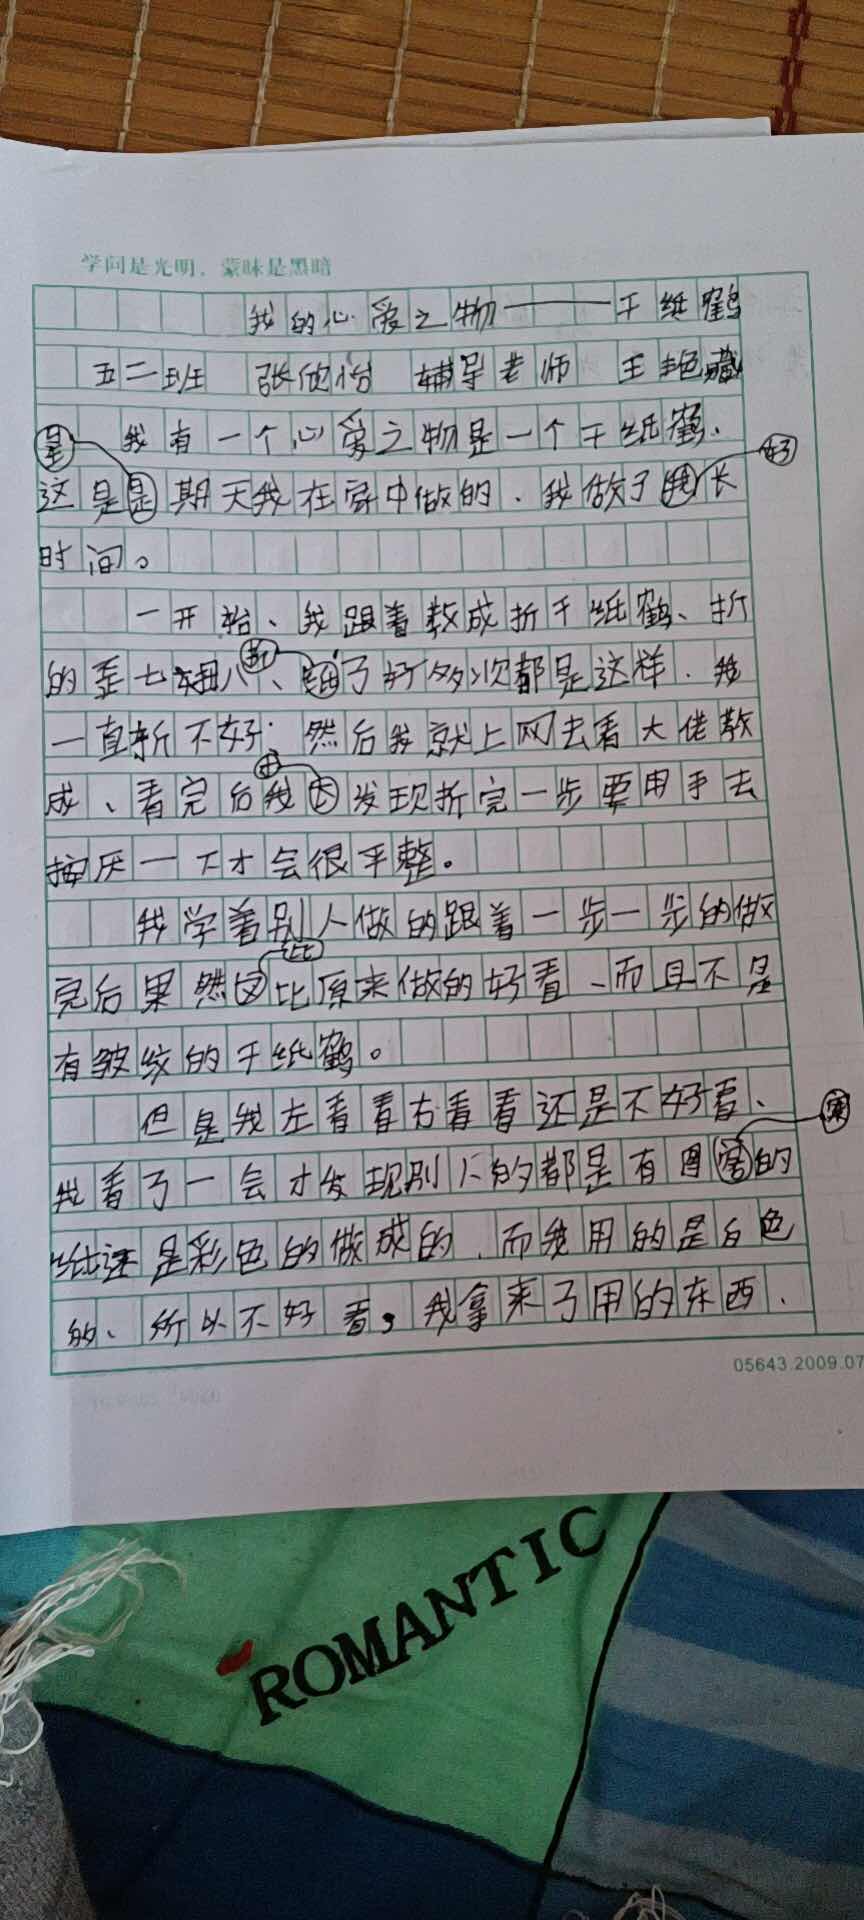 学问是光明，蒙昧是黑暗
我的心爱之物———千纸鹤
五二班 张欣怡 辅导老师 王艳
我有一个心爱之物是一个千纸鹤.
星
好
这是是期天我在家中做的.我做了 长
时间。
一开始、我跟着教成折千纸鹤、折
折
的歪七扭八、 了好多次都是这样.我
一直折不好.然后我就上网去看大佬教
才
成、看完后我 发现折完一步要用手去
按压一下才会很平整。
我学着别人做的跟着一步一步的做
比
完后果然 比原来做的好看、而且不是
有皱纹的千纸鹤。
但是我左看看右看看还是不好看、
案
我看了一会才发现别人的都是有图 的
纸还是彩色的做成的.而我用的是白色
的、所以不好看，我拿来了用的东西.
05643.2009.07
ROMANTIC